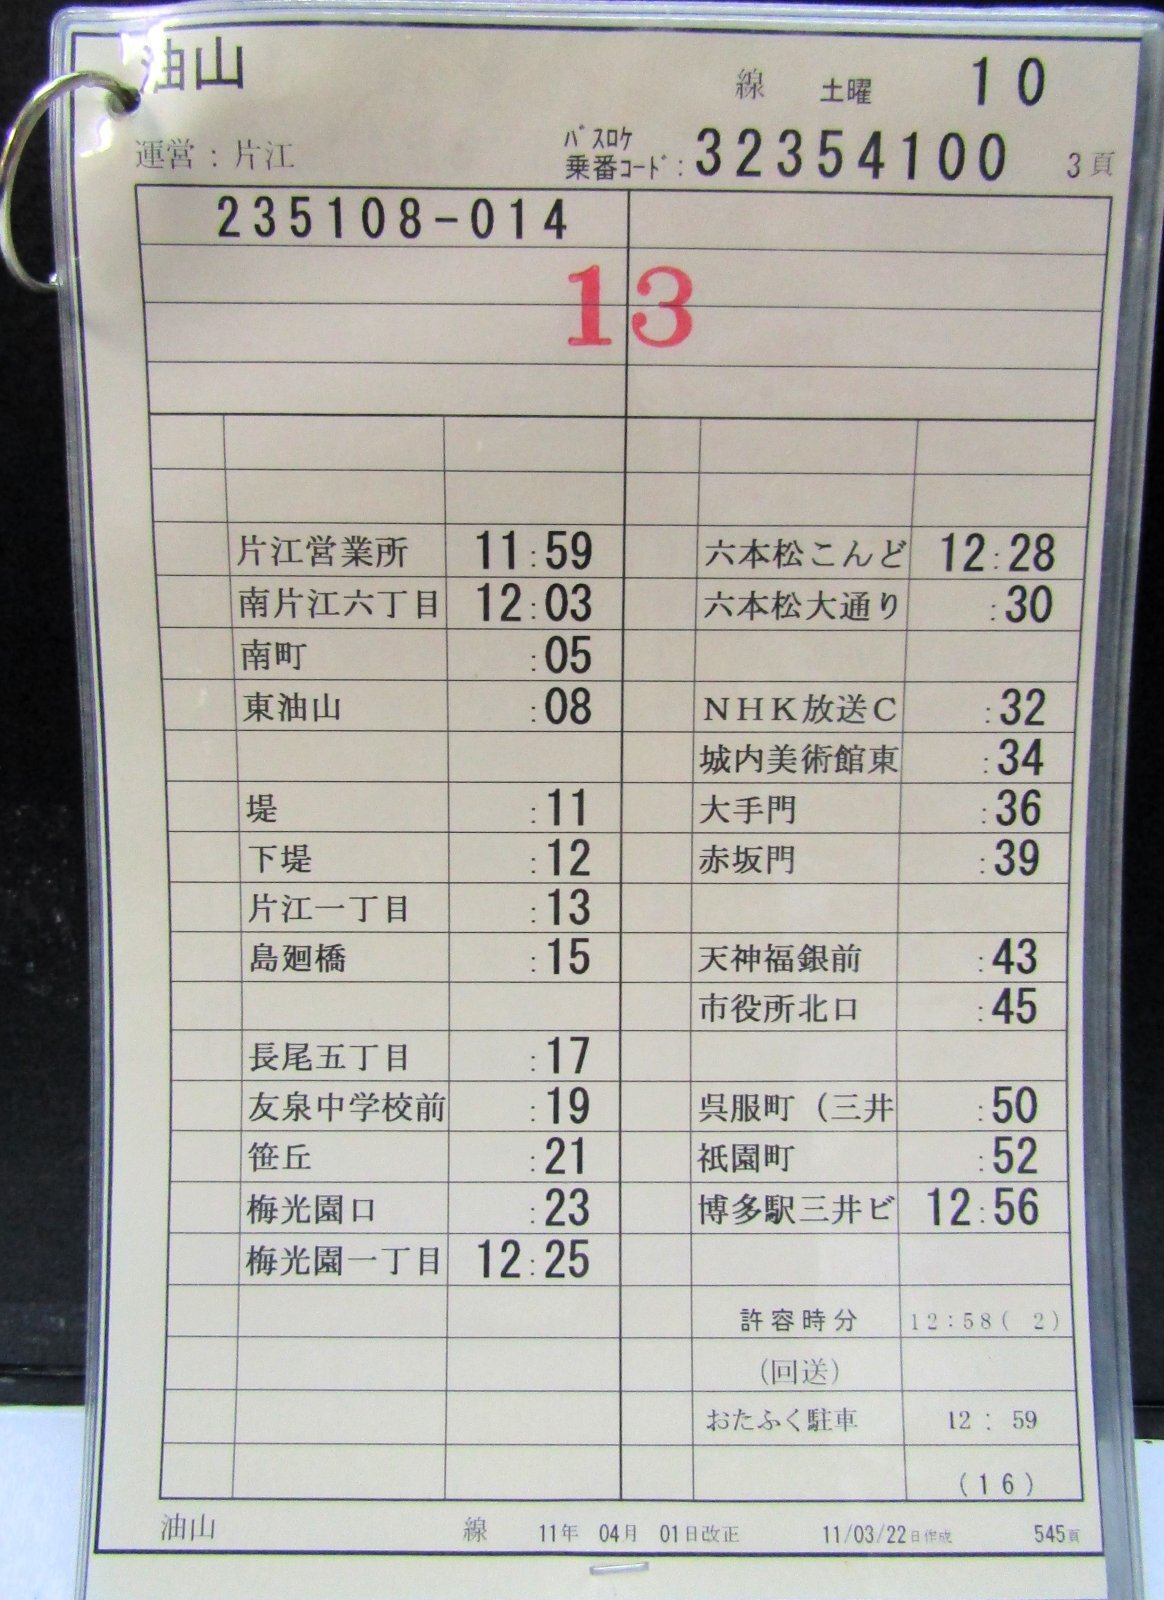 油山 線 土曜 10
運営：片江 バスロケ乗番コード：32354100 3頁
235108-014
13
片江営業所 11:59
南片江六丁目 12:03
南町 :05
東油山 :08
堤 :11
下堤 :12
片江一丁目 :13
島廻橋 :15
長尾五丁目 :17
友泉中学校前 :19
笹丘 :21
梅光園口 :23
梅光園一丁目 12:25
六本松こんど 12:28
六本松大通り :30
NHK放送C :32
城内美術館東 :34
大手門 :36
赤坂門 :39
天神福銀前 :43
市役所北口 :45
呉服町（三井 :50
祇園町 :52
博多駅三井ビ 12:56
許容時分 12:58( 2)
(回送)
おたふく駐車 12: 59
(16)
油山 線 11年 04月 01日改正 11/03/22日作成 545頁